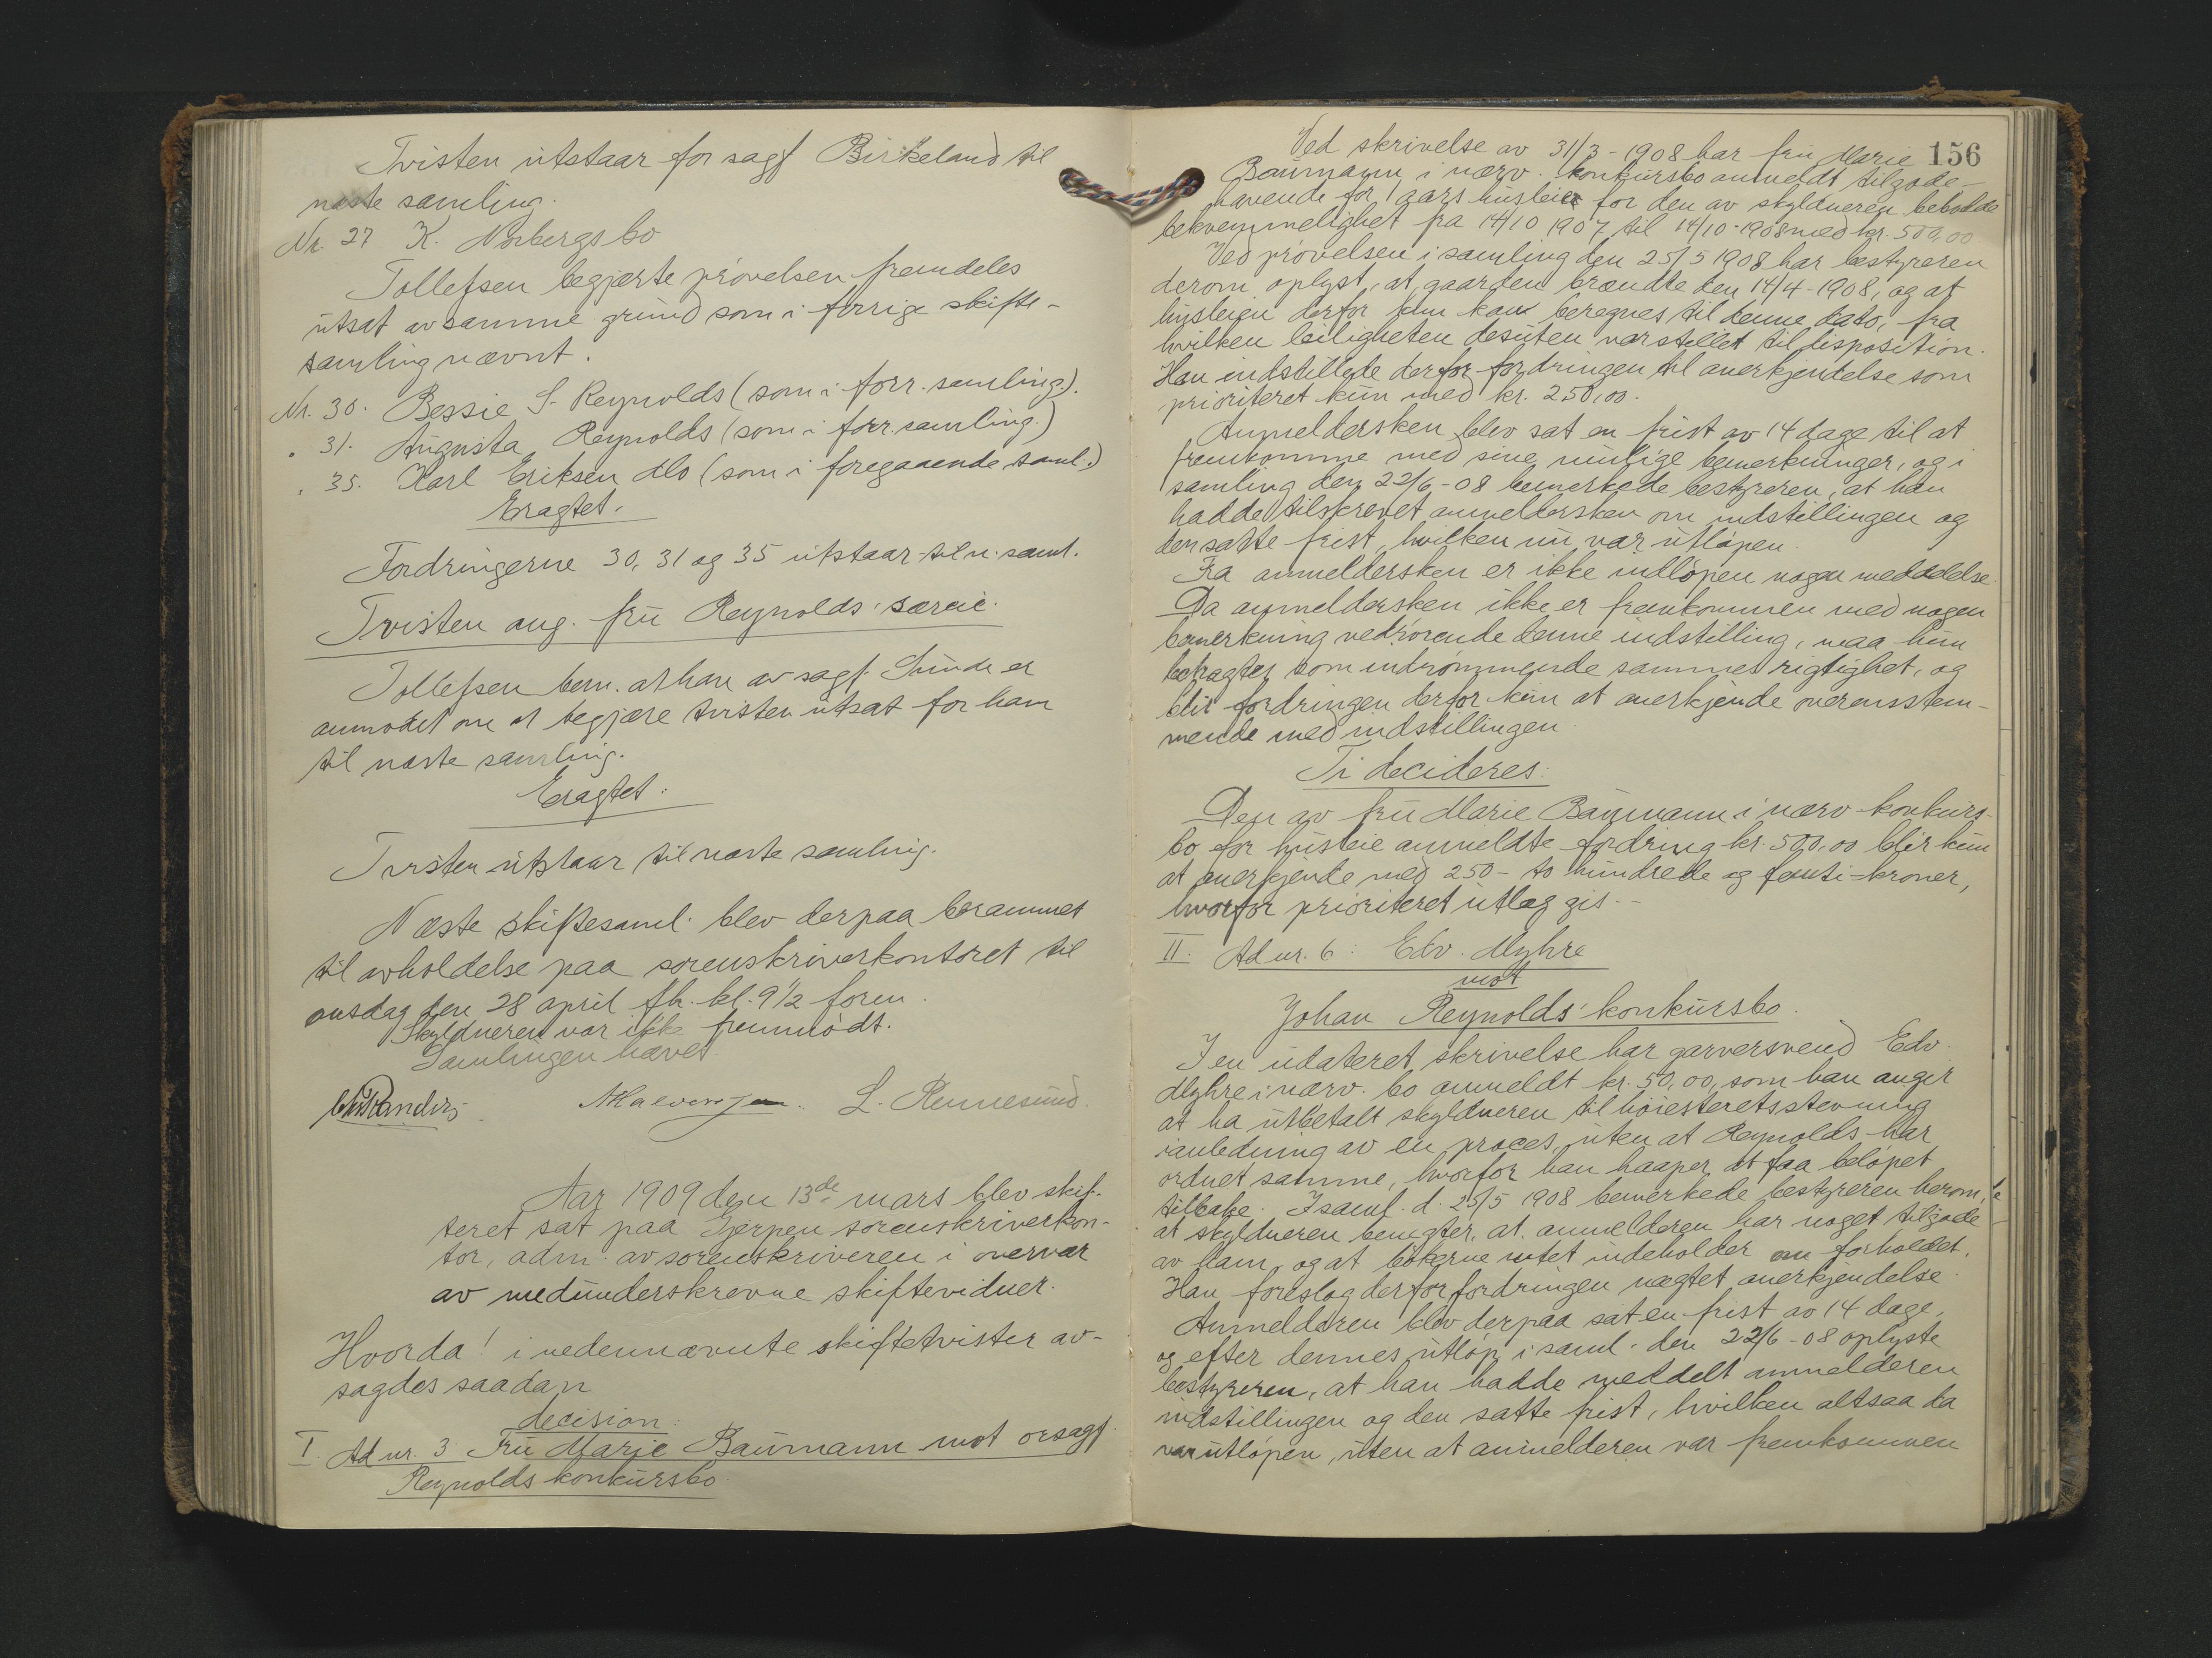 Tvisten utstaar for sagf Birkeland til
næste samling.
Nr. 27 K. Norbergs bo
Tollefsen begjærte prøvelsen fremdeles
utsat av samme grund som i forrige skifte-
samling nævnt.
Nr. 30. Bessie S. Reynolds (som i forr. samling.)
" 31. Augusta Reynolds (som i forr. samling.)
" 35. Karl Eriksen Mo (som i foregaaende saml.)
Eragtet.
Fordringerne 30, 31 og 35 utstaar til n. saml.
Tvisten ang. fru Reynolds særeie.
Tollefsen bem. at han av sagf. Lunde er
anmodet om at begjære tvisten utsat for ham
til næste samling.
Eragtet:
Tvisten utstaar til næste samling.
Næste skiftesaml. blev derpaa berammet
til avholdelse paa sorenskriverkontoret til
onsdag den 28 april fh. kl. 9 1/2 form.
Skyldneren var ikke fremmødt.
Samlingen hævet
L. Rennesund.
Aar 1909 den 13de mars blev skif-
teret sat paa Gjerpen sorenskriverkon-
tor, adm. av sorenskriveren i overvær
av medunderskrevne skiftevidner.
Hvorda! i nedennævnte skiftetvister av-
sagdes saadan
decision:
I. Ad nr. 3 Fru Marie Baumann mot orsagf.
Reynolds konkursbo.
156
Ved skrivelse av 31/3-1908 har fru Marie
Baumann i nærv. konkursbo anmeldt tilgode-
havende for 1 aars husleie for den av skyldneren bebodde
bekvemmelighet fra 14/10 1907 til 14/10-1908 med kr. 500,00.
Ved prøvelsen i samling den 25/5 1908 har bestyreren
derom oplyst, at gaarden brændte den 14/4-1908, og at
husleien derfor kun kan beregnes til denne dato, fra
hvilken leiligheten desuten var stillet til disposition.
Han indstillede derfor fordringen til anerkjendelse som
prioriteret kun med kr. 250,00.
Anmeldersken blev sat en frist av 14 dage til at
fremkomme med sine mulige bemerkninger, og i
samling den 22/6-08 bemerkede bestyreren, at han
hadde tilskrevet anmeldersken om indstillingen og
den satte frist, hvilken nu var utløpen.
Fra anmeldersken er ikke indløpen nogen meddelelse.
Da anmeldersken ikke er fremkommen med nogen
bemerkning vedrørende denne indstilling, maa hun
betragtes som indrømmende sammes rigtighet, og
blir fordringen derfor kun at anerkjende overensstem-
mende med indstillingen.
Ti decideres:
Den av fru Marie Baumann i nærv. konkurs-
bo for husleie anmeldte fordring kr. 500,00 blir kun
at anerkjende med 250 - to hundrede og femti - kroner,
hvorfor prioriteret utlæg gis. -
II. Ad nr. 6: Edv. Myhre
mot
Johan Reynolds' konkursbo.
I en udateret skrivelse har garversvend Edv.
Myhre i nærv. bo anmeldt kr. 50,00, som han angir
at ha utbetalt skyldneren til høiesteretsstevning
i anledning av en proces, uten at Reynolds har
ordnet samme, hvorfor han haaper at faa beløpet
tilbake. I saml. d. 25/5 1908 bemerkede bestyreren herom,
at skyldneren benegter, at anmelderen har noget tilgode
av ham, og at bøkerne intet indeholder om forholdet.
Han foreslog derfor fordringen nægtet anerkjendelse.
Anmelderen blev derpaa sat en frist av 14 dage,
og efter dennes utløp i saml. den 22/6-08 oplyste
bestyreren, at han hadde meddelt anmelderen
indstillingen og den satte frist, hvilken altsaa da
var utløpen, uten at anmelderen var fremkommen